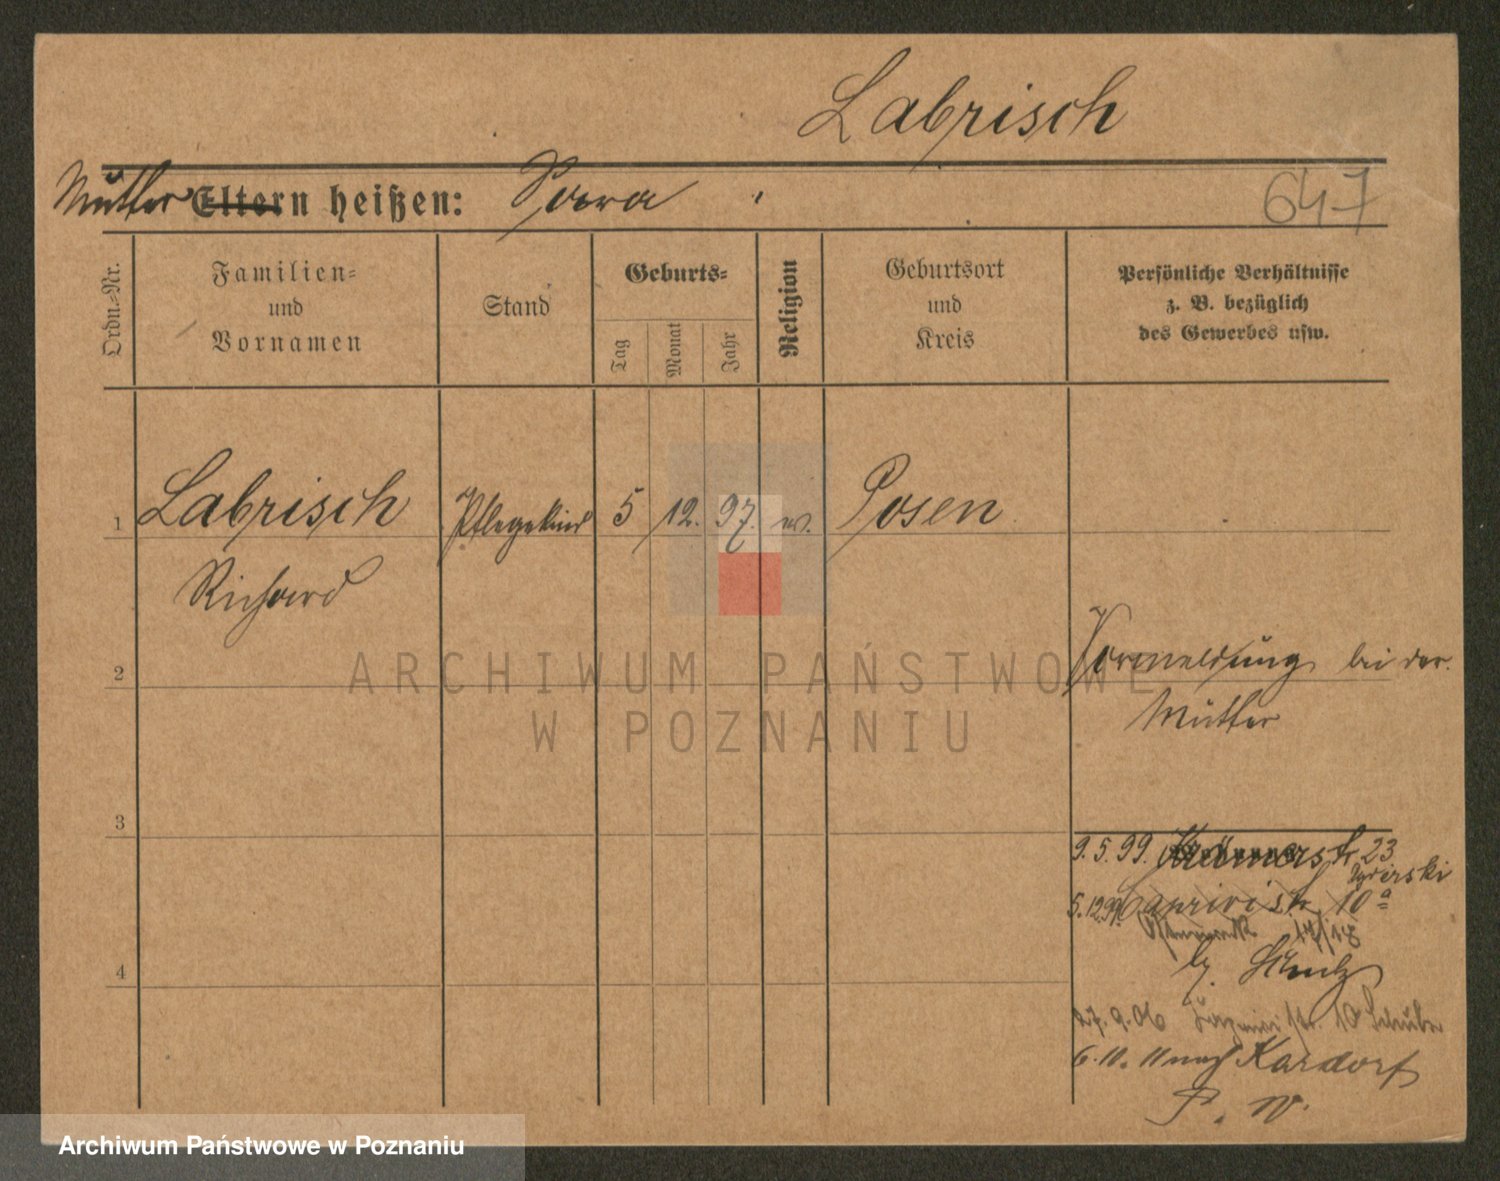 Labrisch
Mutter Eltern heißen:
647
Ordn.-Nr.
Familien-
und
Vornamen
Stand
Geburts-
Tag
Monat
Jahr
Religion
Geburtsort
und
Kreis
Persönliche Verhältnisse
z. B. bezüglich
des Gewerbes usw.
1 Labrisch Pflegekind 5 12. 97. Posen
Richard
2 Vormeldung bei der
Mutter
3
9.5.99. Krämerstr 23
5.12.99. Caprivistr. 10a
17/18
4
27.9.06 10 Schuber
6.11.11 nach Kardorf
P. W.
ARCHIWUM PAŃSTWOWE
W POZNANIU
Archiwum Państwowe w Poznaniu